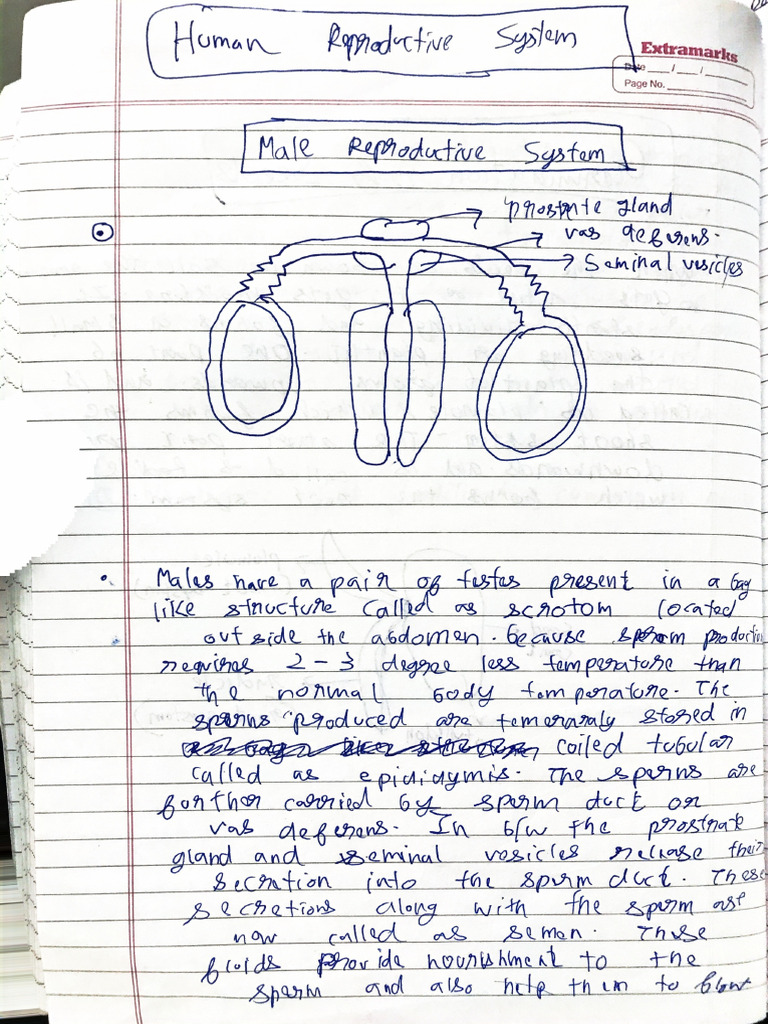 Human Reproductive System
Extramarks
Date ___/___/___
Page No.
Male Reproductive System
prostate gland
vas deferens.
Seminal vesicles
Males have a pair of testes present in a bag
like structure called as scrotom located
outside the abdomen. because sperm production
requires 2-3 degree less temperature than
the normal body temperature. The
sperms produced are temoraraly stored in
coiled tubular
called as epididymis. The sperms are
further carried by sperm duct or
vas deferens. In b/w the prostrate
gland and seminal vesicles release their
secretion into the sperm duct. These
secretions along with the sperm are
now called as semen. These
fluids provide nourishment to the
sperm and also help them to